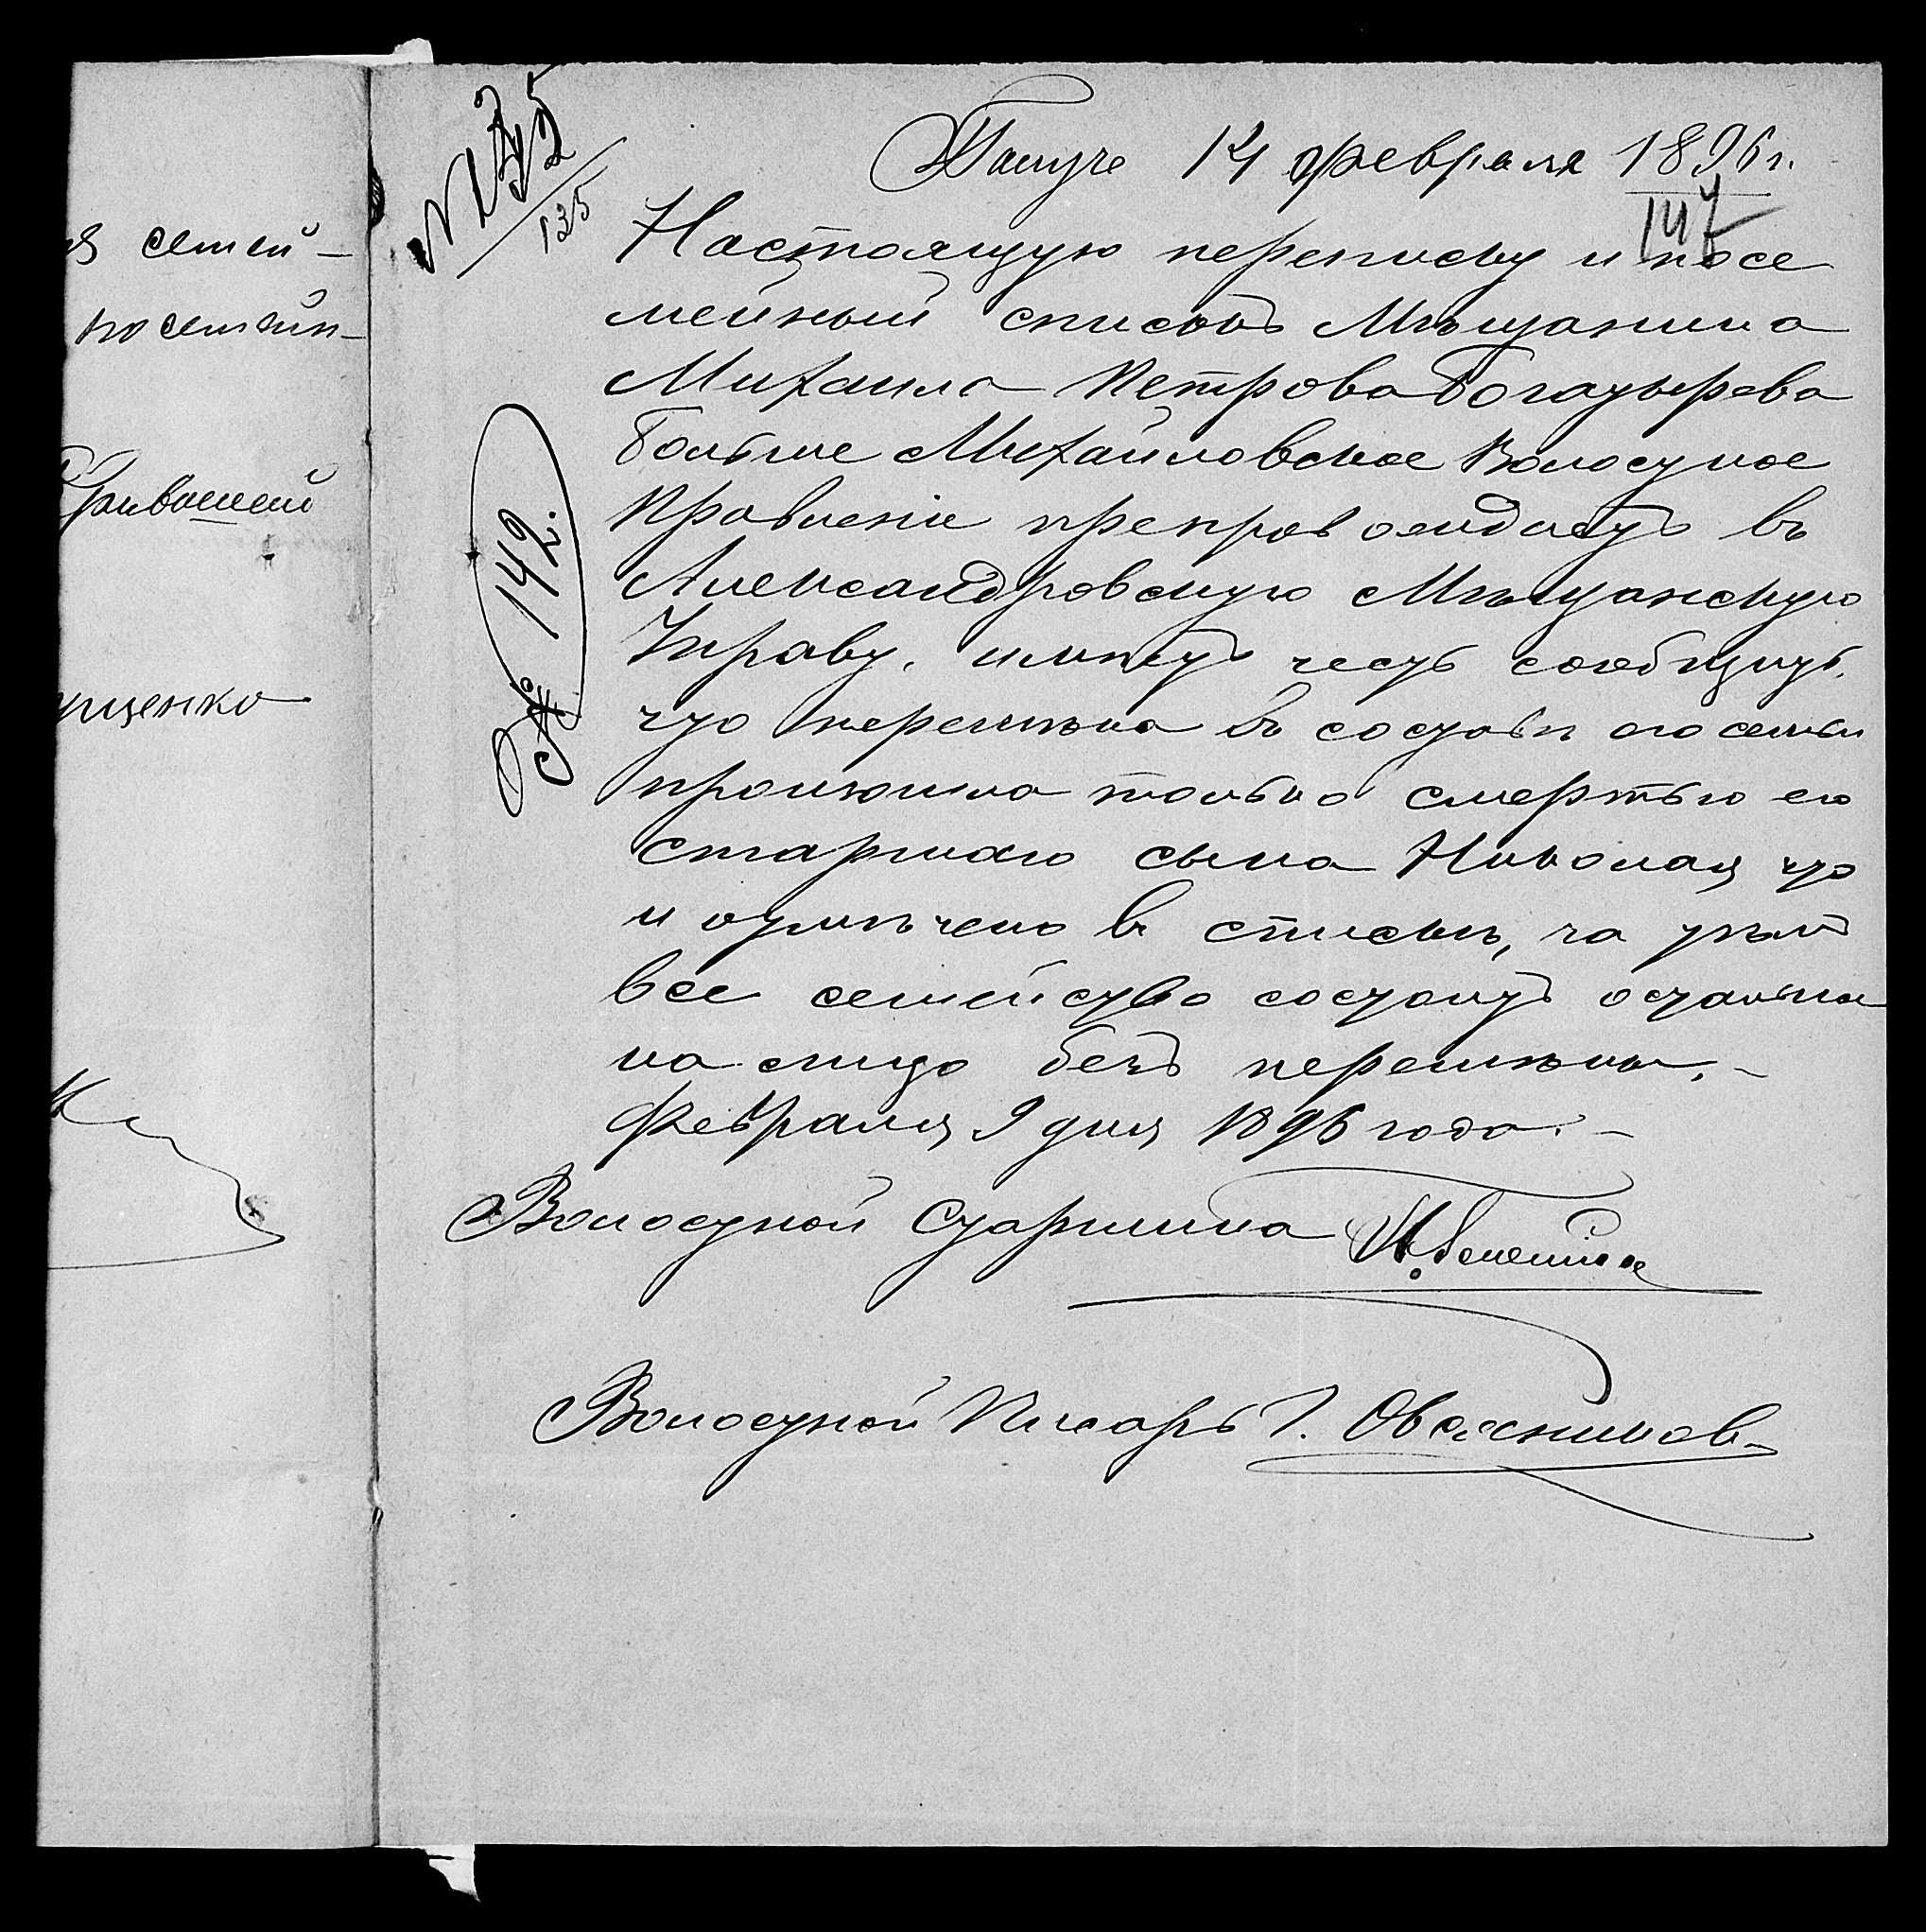 я семей-
посемейн-
Кривошеей
ущенко
№ 135
135
Получ 14 февраля 1896 г.
147
№ 142.
Настоящую переписку и посе
мейный списокъ Мѣщанина
Михаила Петрова Богатырева
Больше Михайловское Волостное
Правленіе препровождаетъ въ
Александровскую Мѣщанскую
Управу, имѣетъ честь сообщить,
что перемѣна въ составѣ его семьи
произошла только смертью его
старшаго сына Николая что
и отмѣчено въ спискѣ, за тѣмъ
все семейство состоитъ остальные
на лицо безъ перемѣны.-
Февраля 9 дня 1896 года.-
Волостной Старшина
Волостной Писарь Г. Овсянников